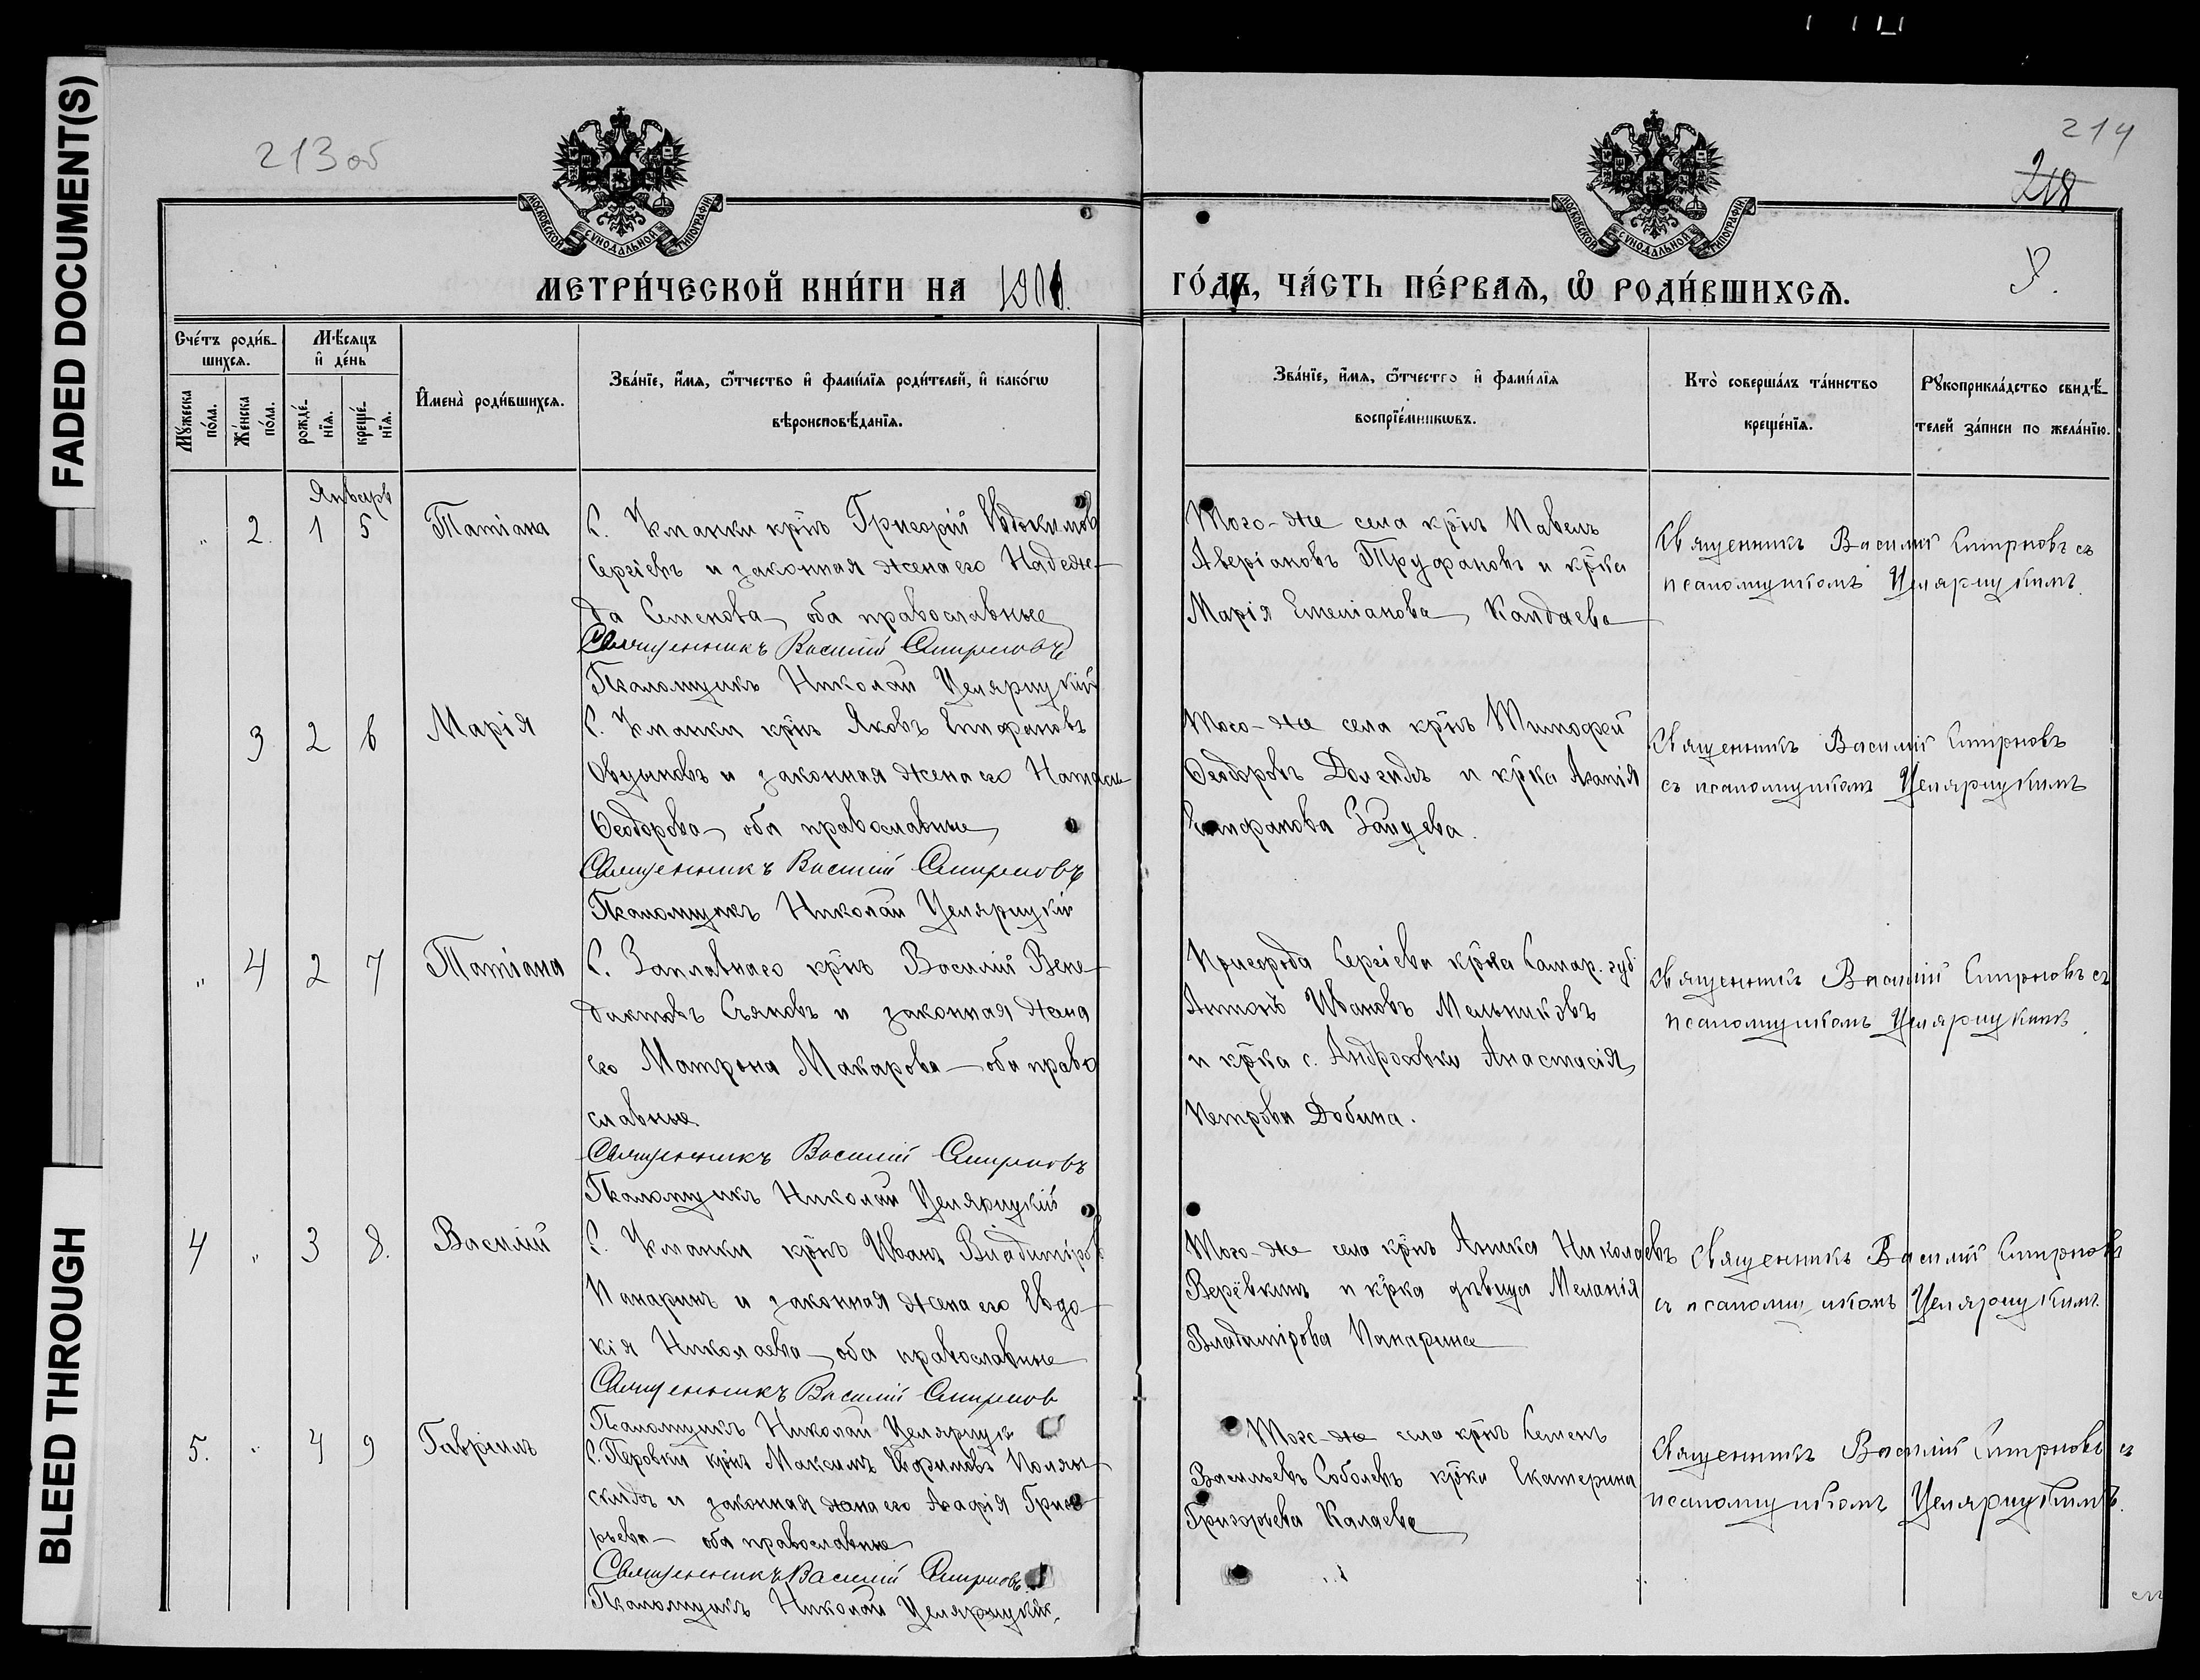 FADED DOCUMENT(S)
BLEED THROUGH
213 об
214
218
МОСКОВСКОЙ СѴНОДАЛЬНОЙ ТИПОГРАФІИ
МОСКОВСКОЙ СѴНОДАЛЬНОЙ ТИПОГРАФІИ
МЕТРИ́ЧЕСКОЙ КНИ́ГИ НА 1901.
ГО́ДЪ, ЧА́СТЬ ПЕ́РВАѦ, Ѽ РОДИ́ВШИХСѦ.
Сче́тъ роди́в-
шихсѧ.
Мꙋ́жеска по́ла.
Же́нска по́ла.
Мѣ́сѧцъ
и҆ де́нь
рожде́-нїѧ.
креще́-нїѧ.
И҆мена̀ роди́вшихсѧ.
Зва́нїе, и҆́мѧ, ѻ҆́тчество и҆ фами́лїѧ роди́телей, и҆ како́гѡ
вѣроисповѣ́данїѧ.
Зва́нїе, и҆́мѧ, ѻ҆́тчество и҆ фами́лїѧ
воспрїе́мникѡвъ.
Кто̀ соверша́лъ та́инство
креще́нїѧ.
Рꙋкоприкла́дство свидѣ́-
телей за́писи по жела́нїю.
Январь
" 2. 1 5 Татіана
С. Утманки крнъ Григорій Евдокимовъ
Сергіевъ и законная жена его Надеж-
да Семенова, оба православные
Священникъ Василій Смирновъ
Псаломщикъ Николай Целярицкій
Того-же села крнъ Павелъ
Аверіановъ Труфановъ и крка
Марія Емеліанова Кандаева
Священникъ Василій Смирновъ съ
псаломщикомъ Целярицкимъ.
3 2 6 Марія
С. Утманки крнъ Яковъ Епифановъ
Овцыновъ и законная жена его Наталь
Ѳеодорова, оба православные
Священникъ Василій Смирновъ
Псаломщикъ Николай Целярицкій
Того-же села крнъ Тимофей
Ѳеодоровъ Долгихъ и крка Агапія
Епифанова Зайцева.
Священникъ Василій Смирновъ
съ псаломщикомъ Целярицкимъ
" 4 2 7 Татіана
С. Заплавнаго крнъ Василій Вене-
диктовъ Съяновъ и законная жена
его Матрона Макарова - оба право
славные.
Священникъ Василій Смирновъ
Псаломщикъ Николай Целярицкій
Пригорода Сергіева крка Самар. губ
Антонъ Ивановъ Мельниковъ
и крка с. Андросовки Анастасія
Петрова Добина.
Священникъ Василій Смирновъ съ
псаломщикомъ Целярицкимъ.
4 " 3 8. Василій
С. Утманки крнъ Иванъ Владиміров
Панаринъ и законная жена его Евдо-
кія Николаева - оба православные
Священникъ Василій Смирнов
Псаломщикъ Николай Целярицк
Того-же села крнъ Аника Николаевъ
Верёвкинъ и крка дѣвица Меланія
Владимірова Панарина
Священникъ Василій Смирновъ
съ псаломщикомъ Целярицкимъ.
5. " 4 9 Гавріилъ
С. Перовки крнъ Максимъ Ефимовъ Полян-
скихъ и законная жена его Агафія Григо-
рьева - оба православные
Священникъ Василій Смирновъ.
Псаломщикъ Николай Целярицкій.
Того-же села крнъ Семенъ
Васильевъ Соболевъ крка Екатерина
Григорьева Калаева
Священникъ Василій Смирновъ съ
псаломщикомъ Целярицкимъ.